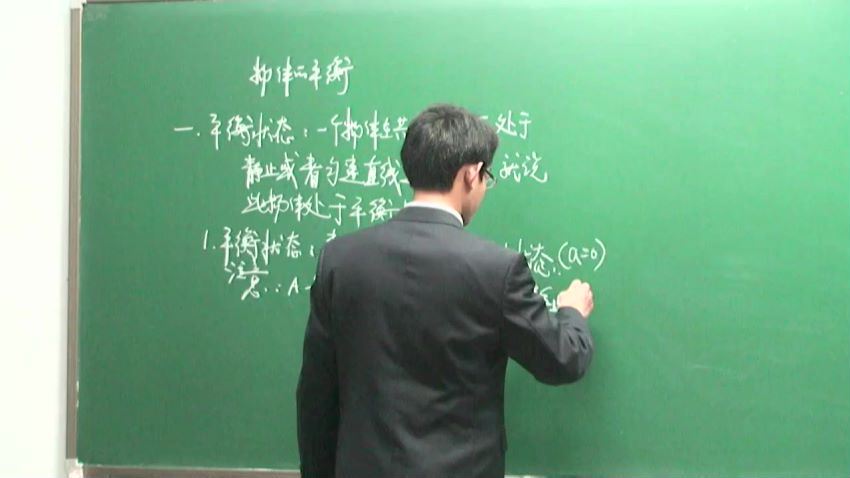 物体的平衡
一.平衡状态:一个物体在共 处于
静止或者匀速直线 就说
此物体处于平衡
1.平衡状态: 状态.(a=0)
注意:A